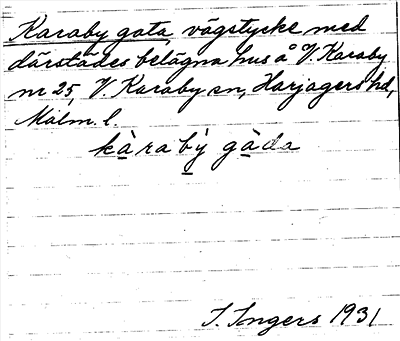 Karaby gata, vägstycke med
därstädes belägna hus å V. Karaby
nr 25, V. Karaby sn, Harjagers hd,
Malm. l.
kàrabỳ gàda
I. Ingers 1931